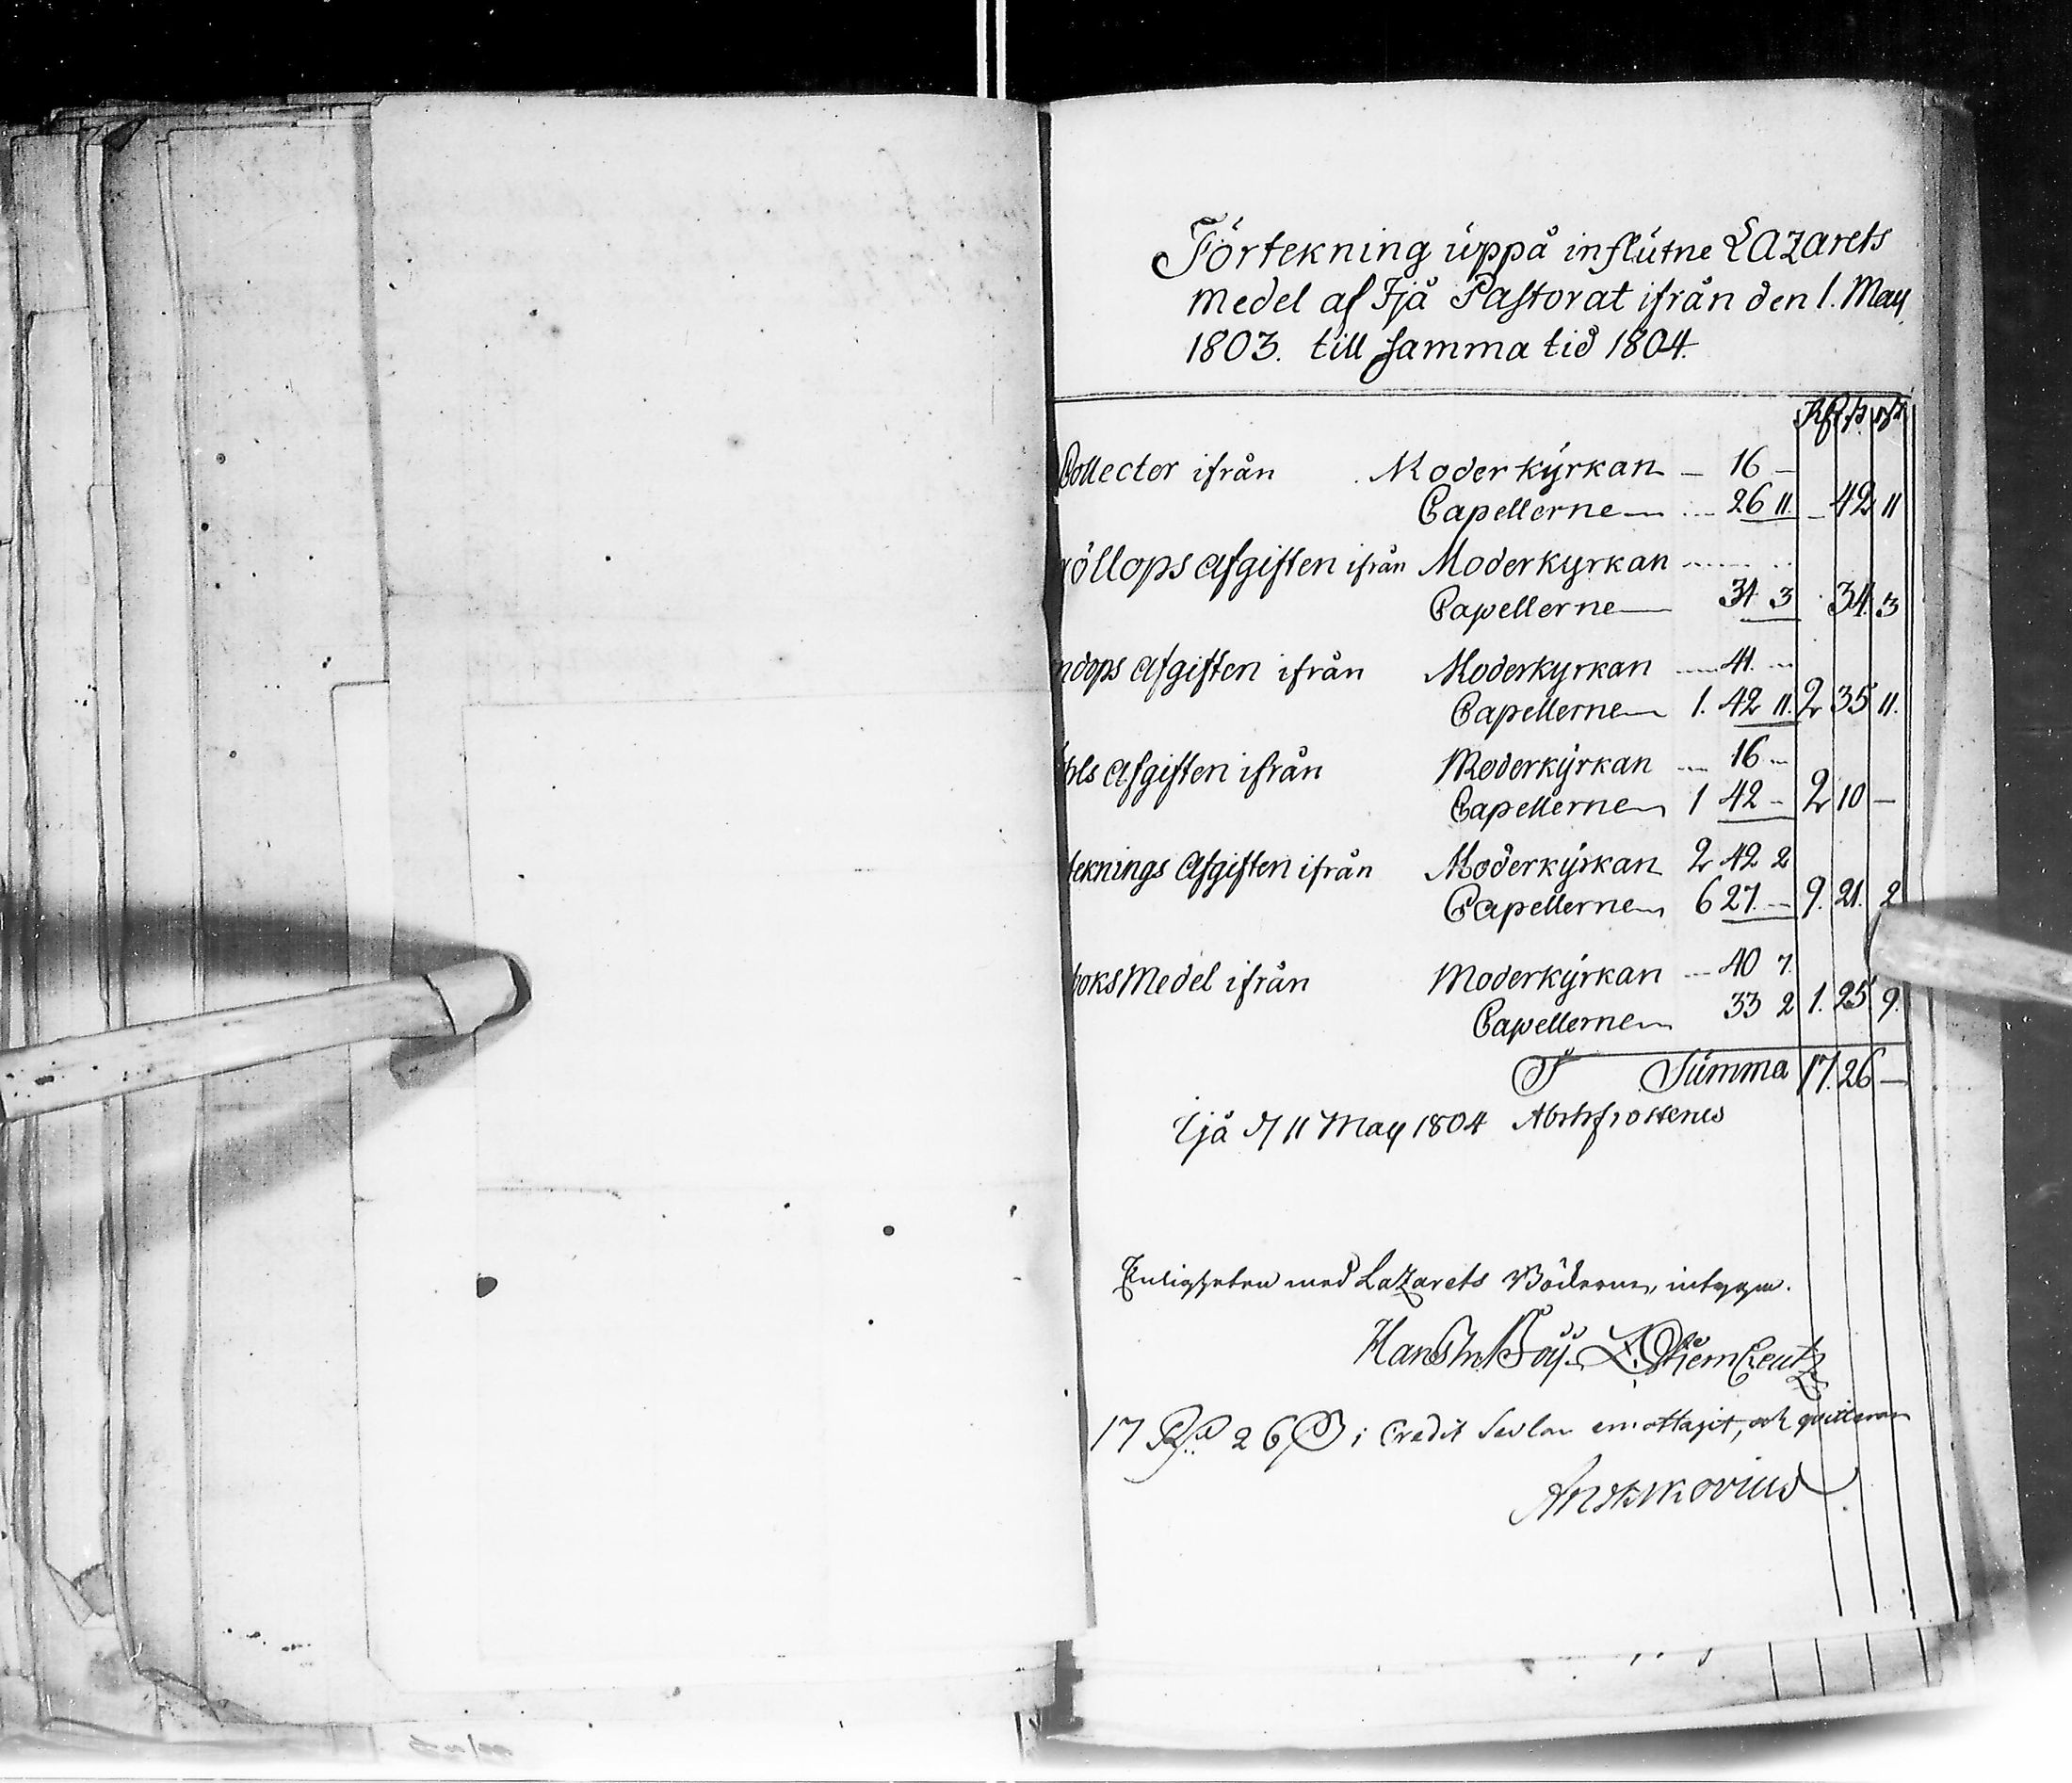 Förtekning uppå influtne Lazarets
medel af Ijå Pastorat ifrån den 1. May
1803. till samma tid 1804.
Rd ß rst
Collecter ifrån Moderkyrkan — 16 —
Capellerne — 26 11. — 42 11
öllops afgiften ifrån Moderkyrkan
Capellerne — 34 3 34. 3
ndops afgiften ifrån Moderkyrkan — 41. —
Capellerne — 1. 42 11. 2 35 11.
hls afgiften ifrån Moderkyrkan — 16 —
Capellerne 1 42 — 2 10 —
teknings Afgiften ifrån Moderkyrkan 2 42 2
Capellerne 6 27 — 9. 21. 2
boks Medel ifrån Moderkyrkan — 40 7.
Capellerne 33 2 1. 25. 9.
Summa 17. 26 —
Ijå d 11 May 1804
Enligheten med Lazarets Böckerne, intyga.
17 Rd 26 ß i Credit Sedlar emottagit, och quitteras